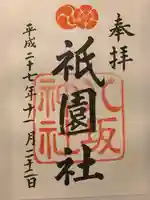 奉拝
八坂神社
祇園社
平成二十七年十一月二十二日